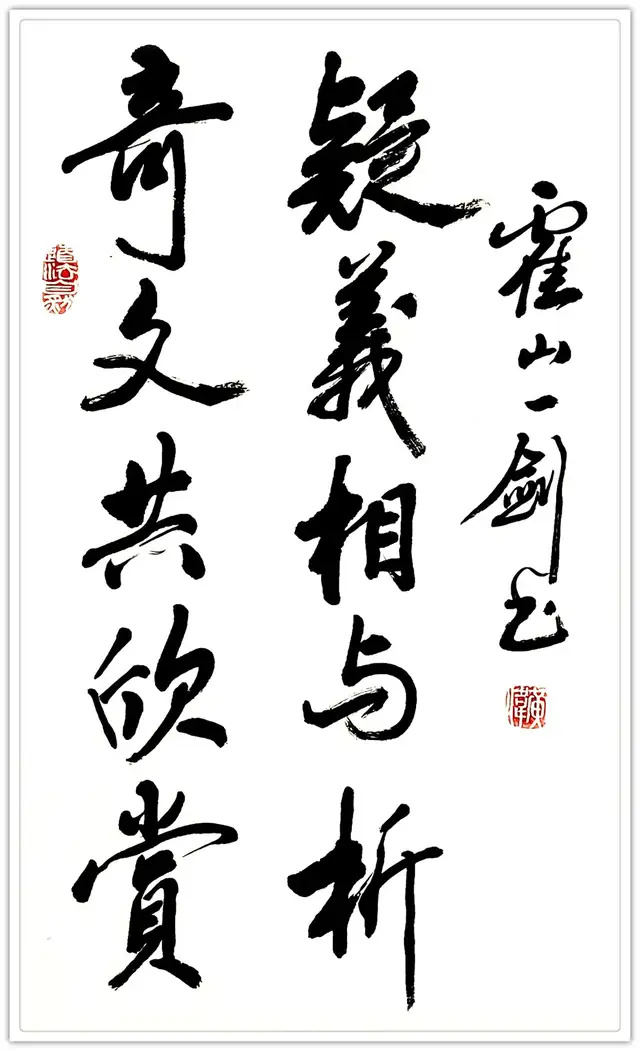 奇文共欣賞
疑義相与析
霍山一劍书
黄偉